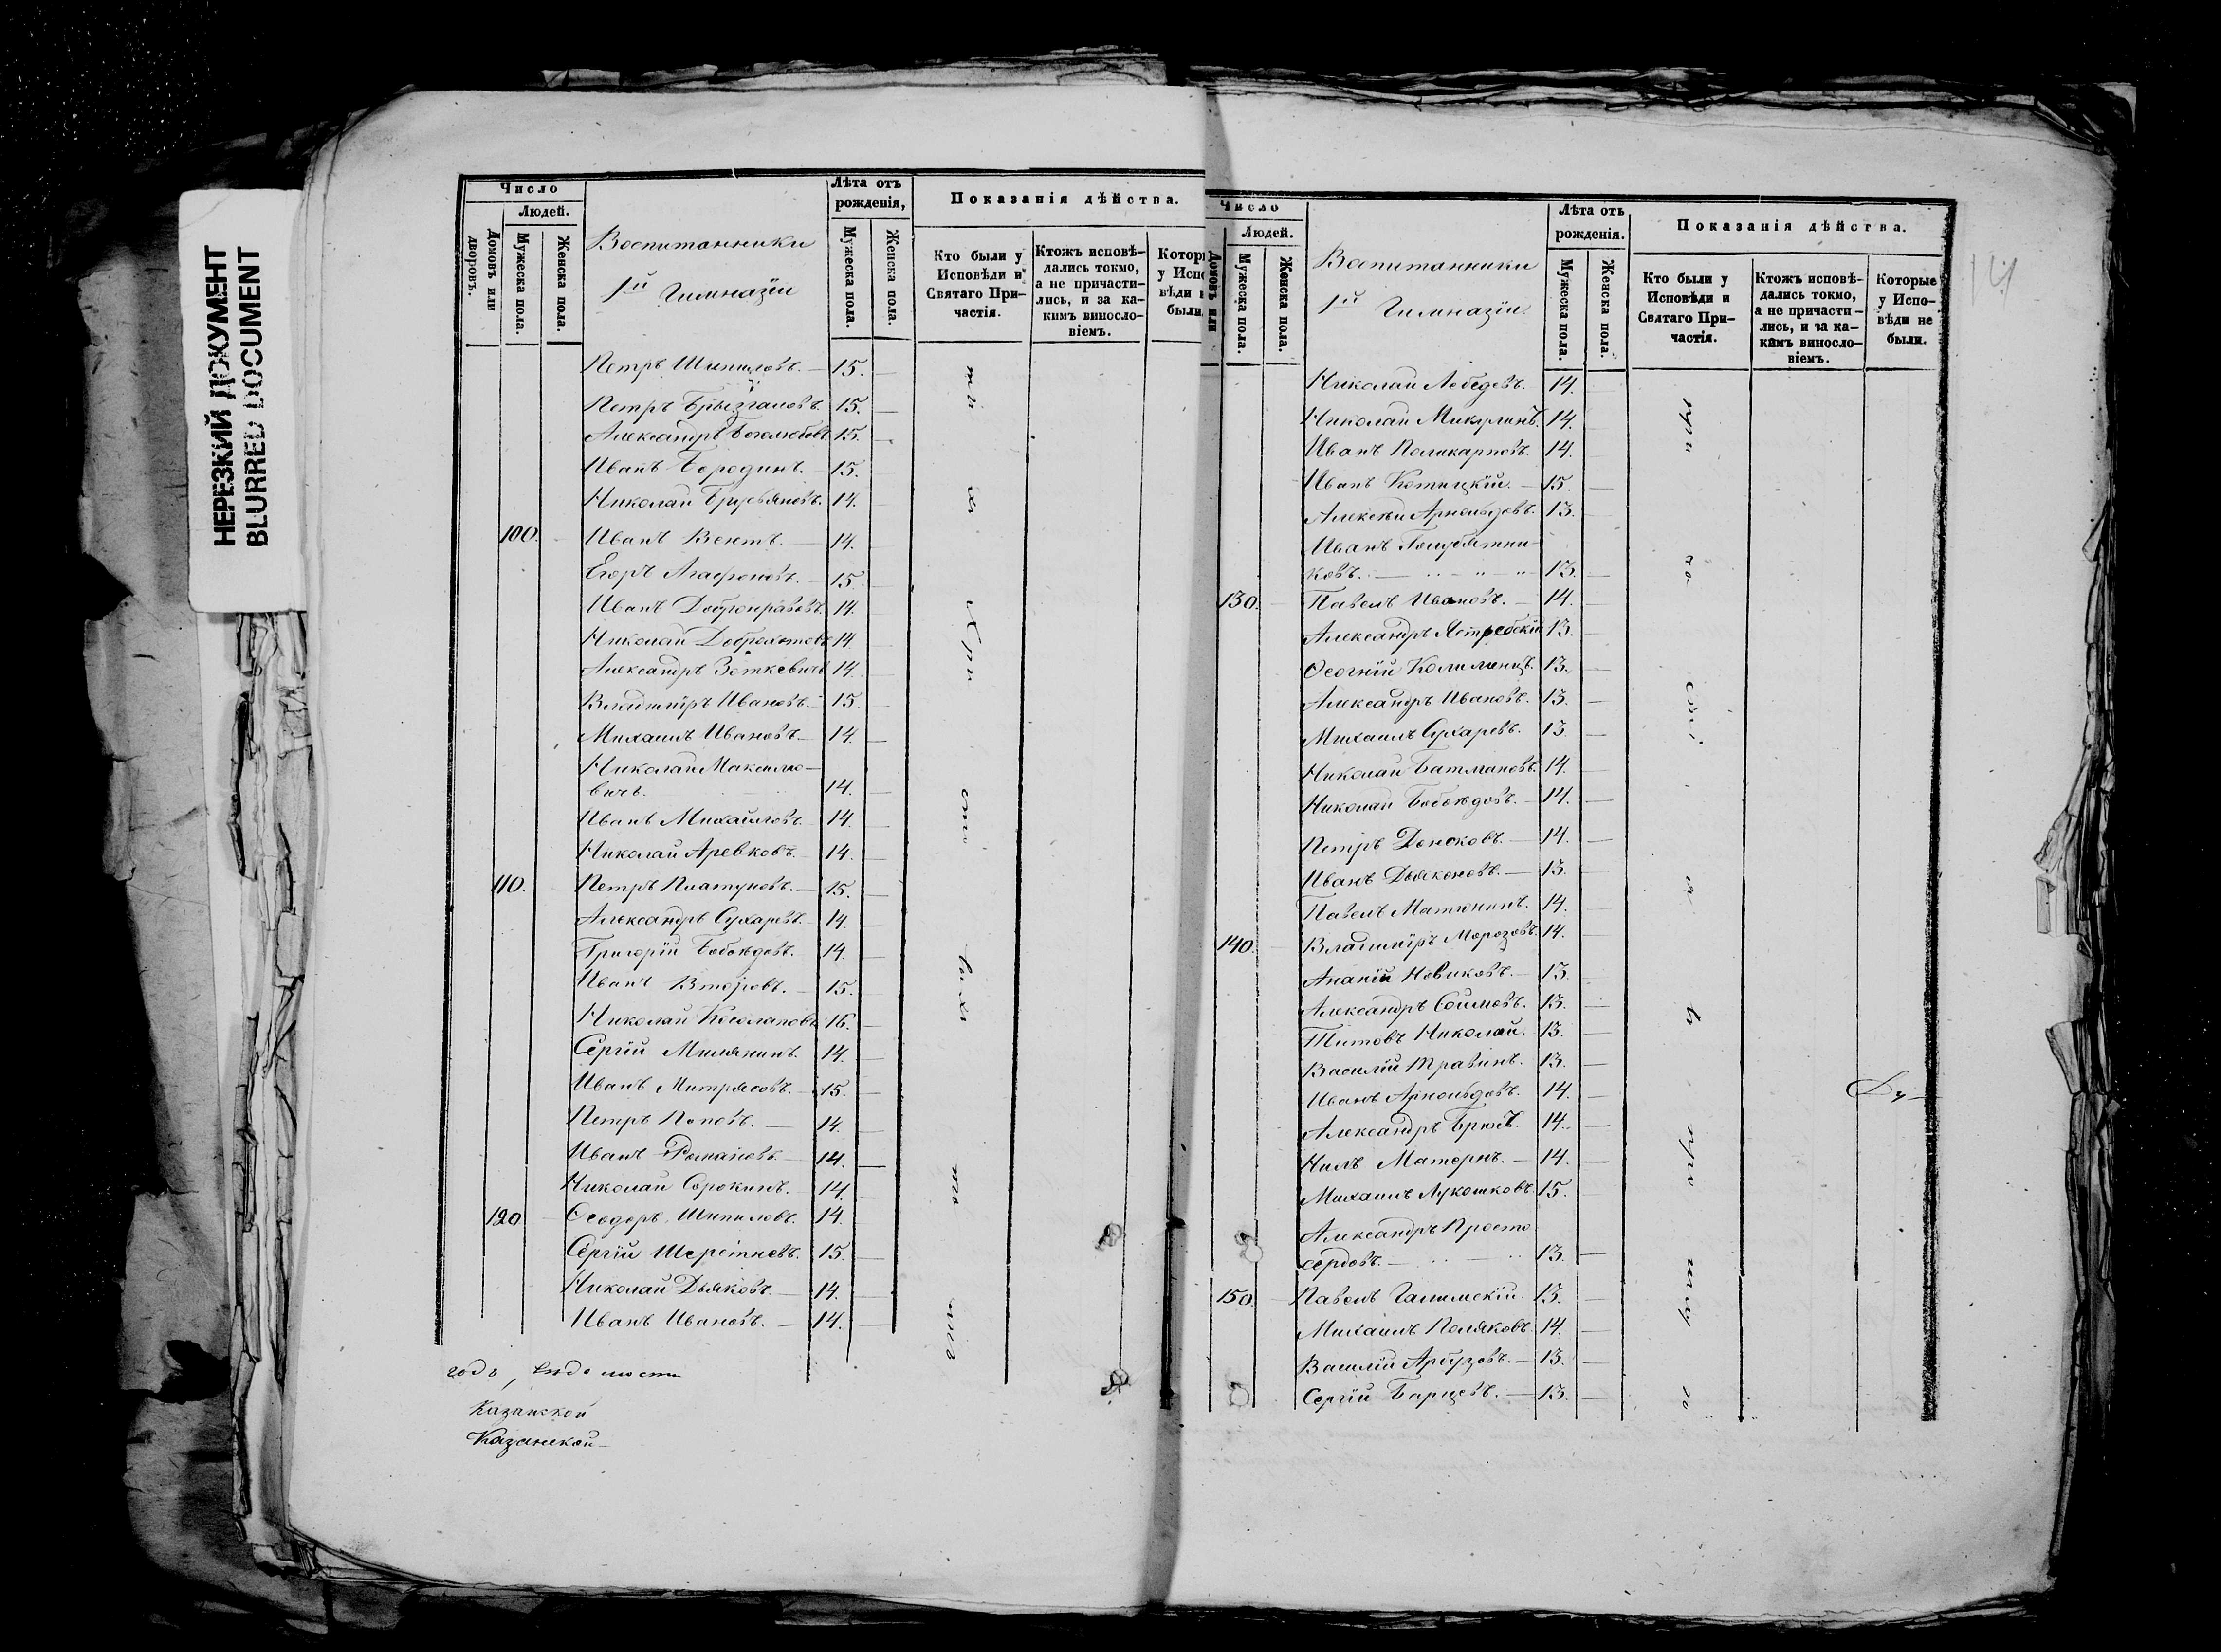 НЕРЕЗКИЙ ДОКУМЕНТ
BLURRED DOCUMENT
Число
Людей.
Домовъ или дворовъ.
Мужеска пола.
Женска пола.
Воспитанники
1й Гимназіи
Лѣта отъ рожденія,
Мужеска пола.
Женска пола.
Показанія дѣйства.
Кто были у Исповѣди и Святаго Причастія.
Ктожъ исповѣдались токмо, а не причастились, и за какимъ винословіемъ.
Которы у Исповѣди н были
Петръ Шипиловъ. — 15. —
Петръ Брызгаловъ. 15. —
Александръ Боголюбовъ 15. —
Иванъ Бородинъ. — 15. —
Николай 14. —
100. Иванъ Вентъ. — 14. —
Егоръ Агафоновъ. — 15. —
Иванъ Добронравовъ. 14. —
Николай Доброхотовъ 14 —
Александръ Зеткевичъ 14. —
Владиміръ Ивановъ. — 15. —
Михаилъ Ивановъ. — 14. —
Николай Максимо-
вичъ. 14. —
Иванъ Михайловъ. — 14. —
Николай Аревковъ. — 14. —
110. Петръ Платуновъ. — 15. —
Александръ Сухаревъ. — 14. —
Григорій Бобоѣдовъ. 14. —
Иванъ Второвъ. — 15. —
Николай Косолаповъ 16. —
Сергій 14. —
Иванъ Митрясовъ. — 15. —
Петръ Поповъ. — 14. —
Иванъ Романовъ. — 14. —
Николай Сорокинъ. — 14. —
120 Ѳеодоръ Шипиловъ. 14. —
Сергій Шереметевъ. 15. —
Николай Дьяковъ. — 14. —
Иванъ Ивановъ. — 14. —
годъ,
Казанской
Казанской
14
Число
Людей.
Домовъ или
Мужеска пола.
Женска пола.
Воспитанники
1й Гимназіи.
Лѣта отъ рожденія.
Мужеска пола.
Женска пола.
Показанія дѣйства.
Кто были у Исповѣди и Святаго Причастія.
Ктожъ исповѣдались токмо, а не причастились, и за какимъ винословіемъ.
Которые у Исповѣди не были.
Николай Лебедевъ. 14. —
Николай Микулинъ. 14. —
Иванъ Поликарповъ. 14. —
Иванъ Котицкій. — 15. —
Алексѣй Арнольдовъ. 13. —
Иванъ Голубятни-
ковъ. — 13. —
130. Павелъ Ивановъ. — 14. —
Александръ Ястребскій 13. —
13. —
Александръ Ивановъ. 13. —
Михаилъ Сухаревъ. 13. —
Николай Батмановъ. 14. —
Николай Бобоѣдовъ. — 14. —
Петръ Донсковъ. — 14. —
Иванъ Дьяконовъ. — 13. —
Павелъ Матюнинъ. 14. —
140. Владиміръ Морозовъ. 14. —
Ананій Новиковъ. — 13. —
Александръ Соимовъ. 13. —
Титовъ Николай. 13. —
Василій Травинъ. 13. —
Иванъ Арнольдовъ. 14. —
Александръ 14. —
Нилъ Матернъ. — 14. —
Михаилъ Лукошковъ. 15. —
Александръ Просто
сердовъ. — 13. —
150. Павелъ Галимскій. 13. —
Михаилъ Поляковъ. 14. —
Василій Арбузовъ. — 13. —
Сергій Барцевъ. — 13. —
Ду-